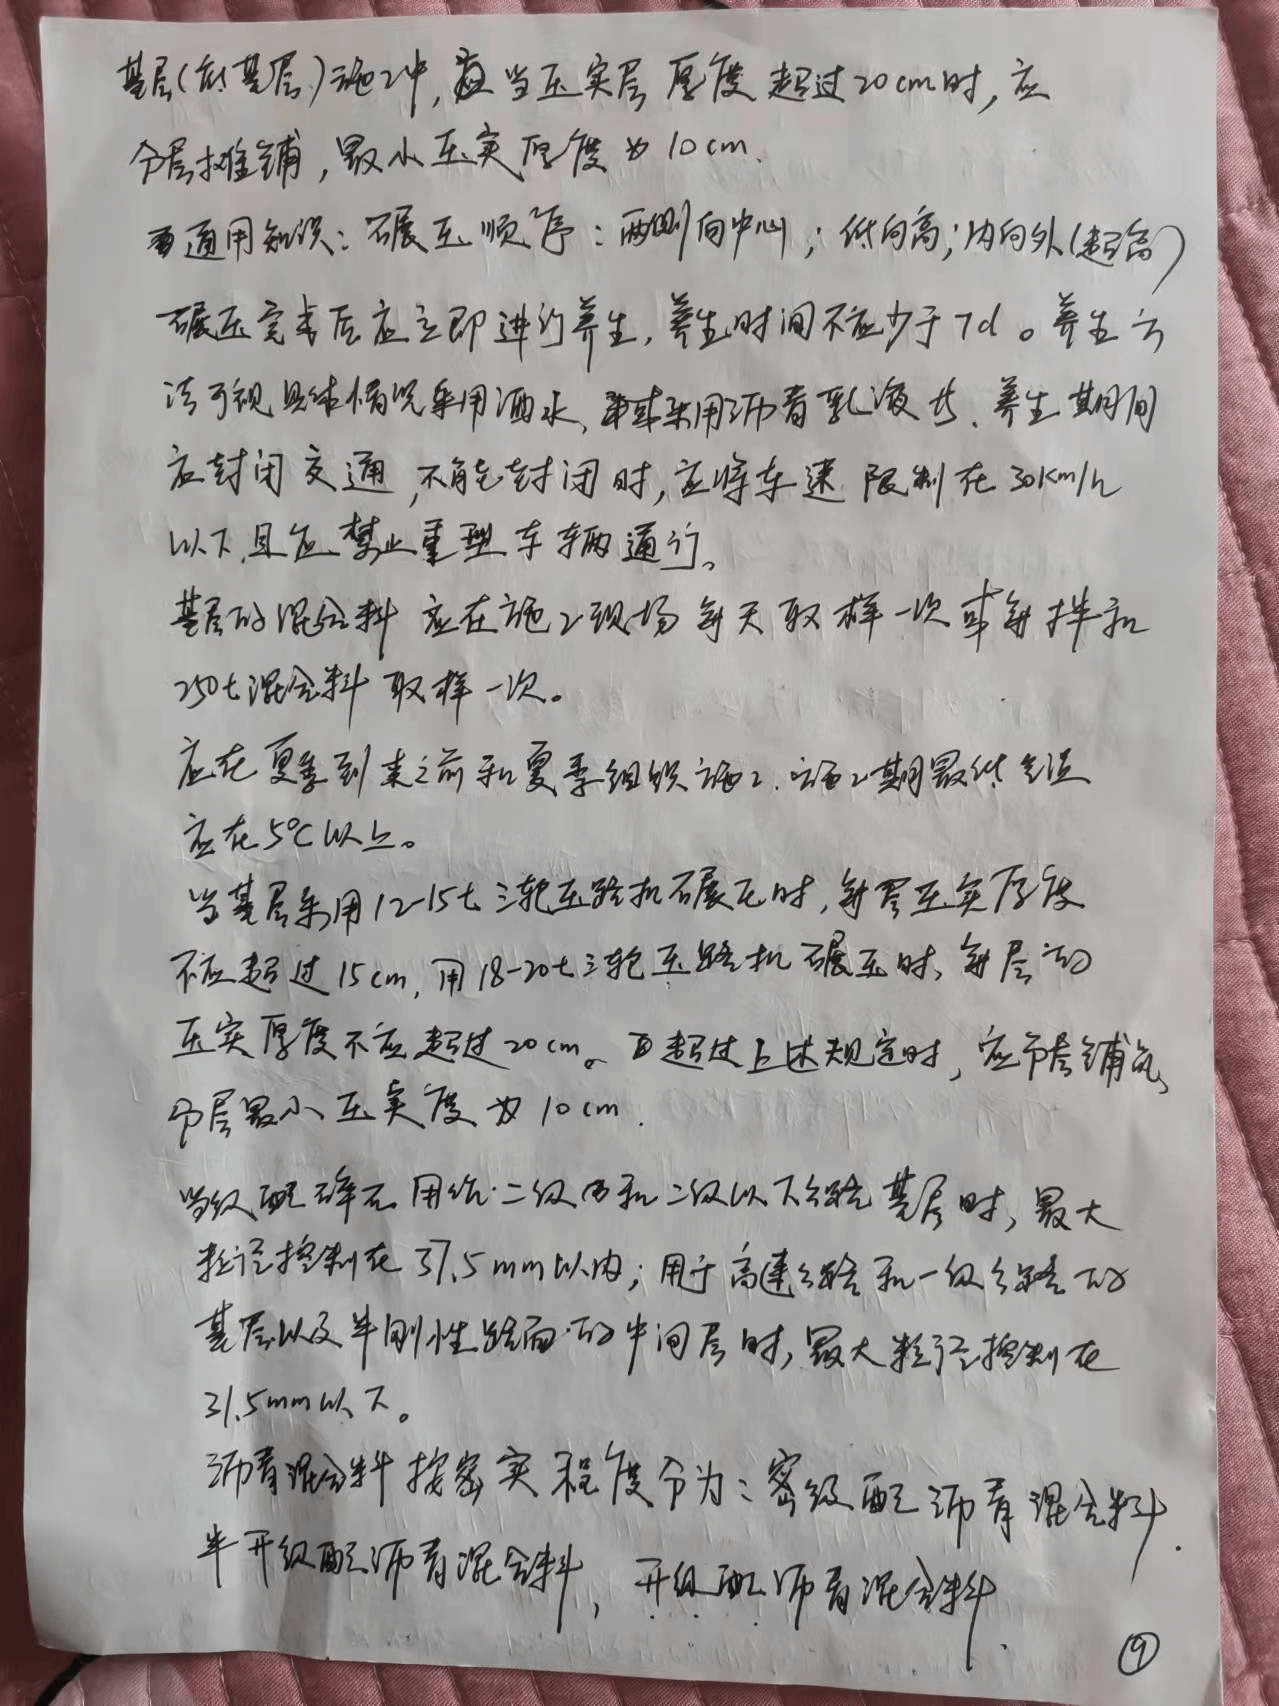 基层(底基层)施工中,当压实层厚度超过20cm时,应
分层摊铺,最小压实厚度为10cm.
通用知识:碾压顺序:两侧向中心;低向高;内向外(超高)
碾压完毕后应立即进行养生,养生时间不应少于7d。养生方
法可视具体情况采用洒水,或采用沥青乳液等.养生期间
应封闭交通,不能封闭时,应将车速限制在30km/h
以下,且应禁止重型车辆通行。
基层的混合料应在施工现场每天取样一次或每拌和
250t混合料取样一次。
应在夏季到来之前和夏季组织施工.施工期最低气温
应在5℃以上。
当基层采用12-15t三轮压路机碾压时,每层压实厚度
不应超过15cm,用18-20t三轮压路机碾压时,每层的
压实厚度不应超过20cm。超过上述规定时,应分层铺筑,
分层最小压实度为10cm.
当级配碎石用作二级和二级以下公路基层时,最大
粒径控制在37.5mm以内;用于高速公路和一级公路的
基层以及半刚性路面的中间层时,最大粒径控制在
31.5mm以下。
沥青混合料按密实程度分为:密级配沥青混合料.
半开级配沥青混合料,开级配沥青混合料.
⑨